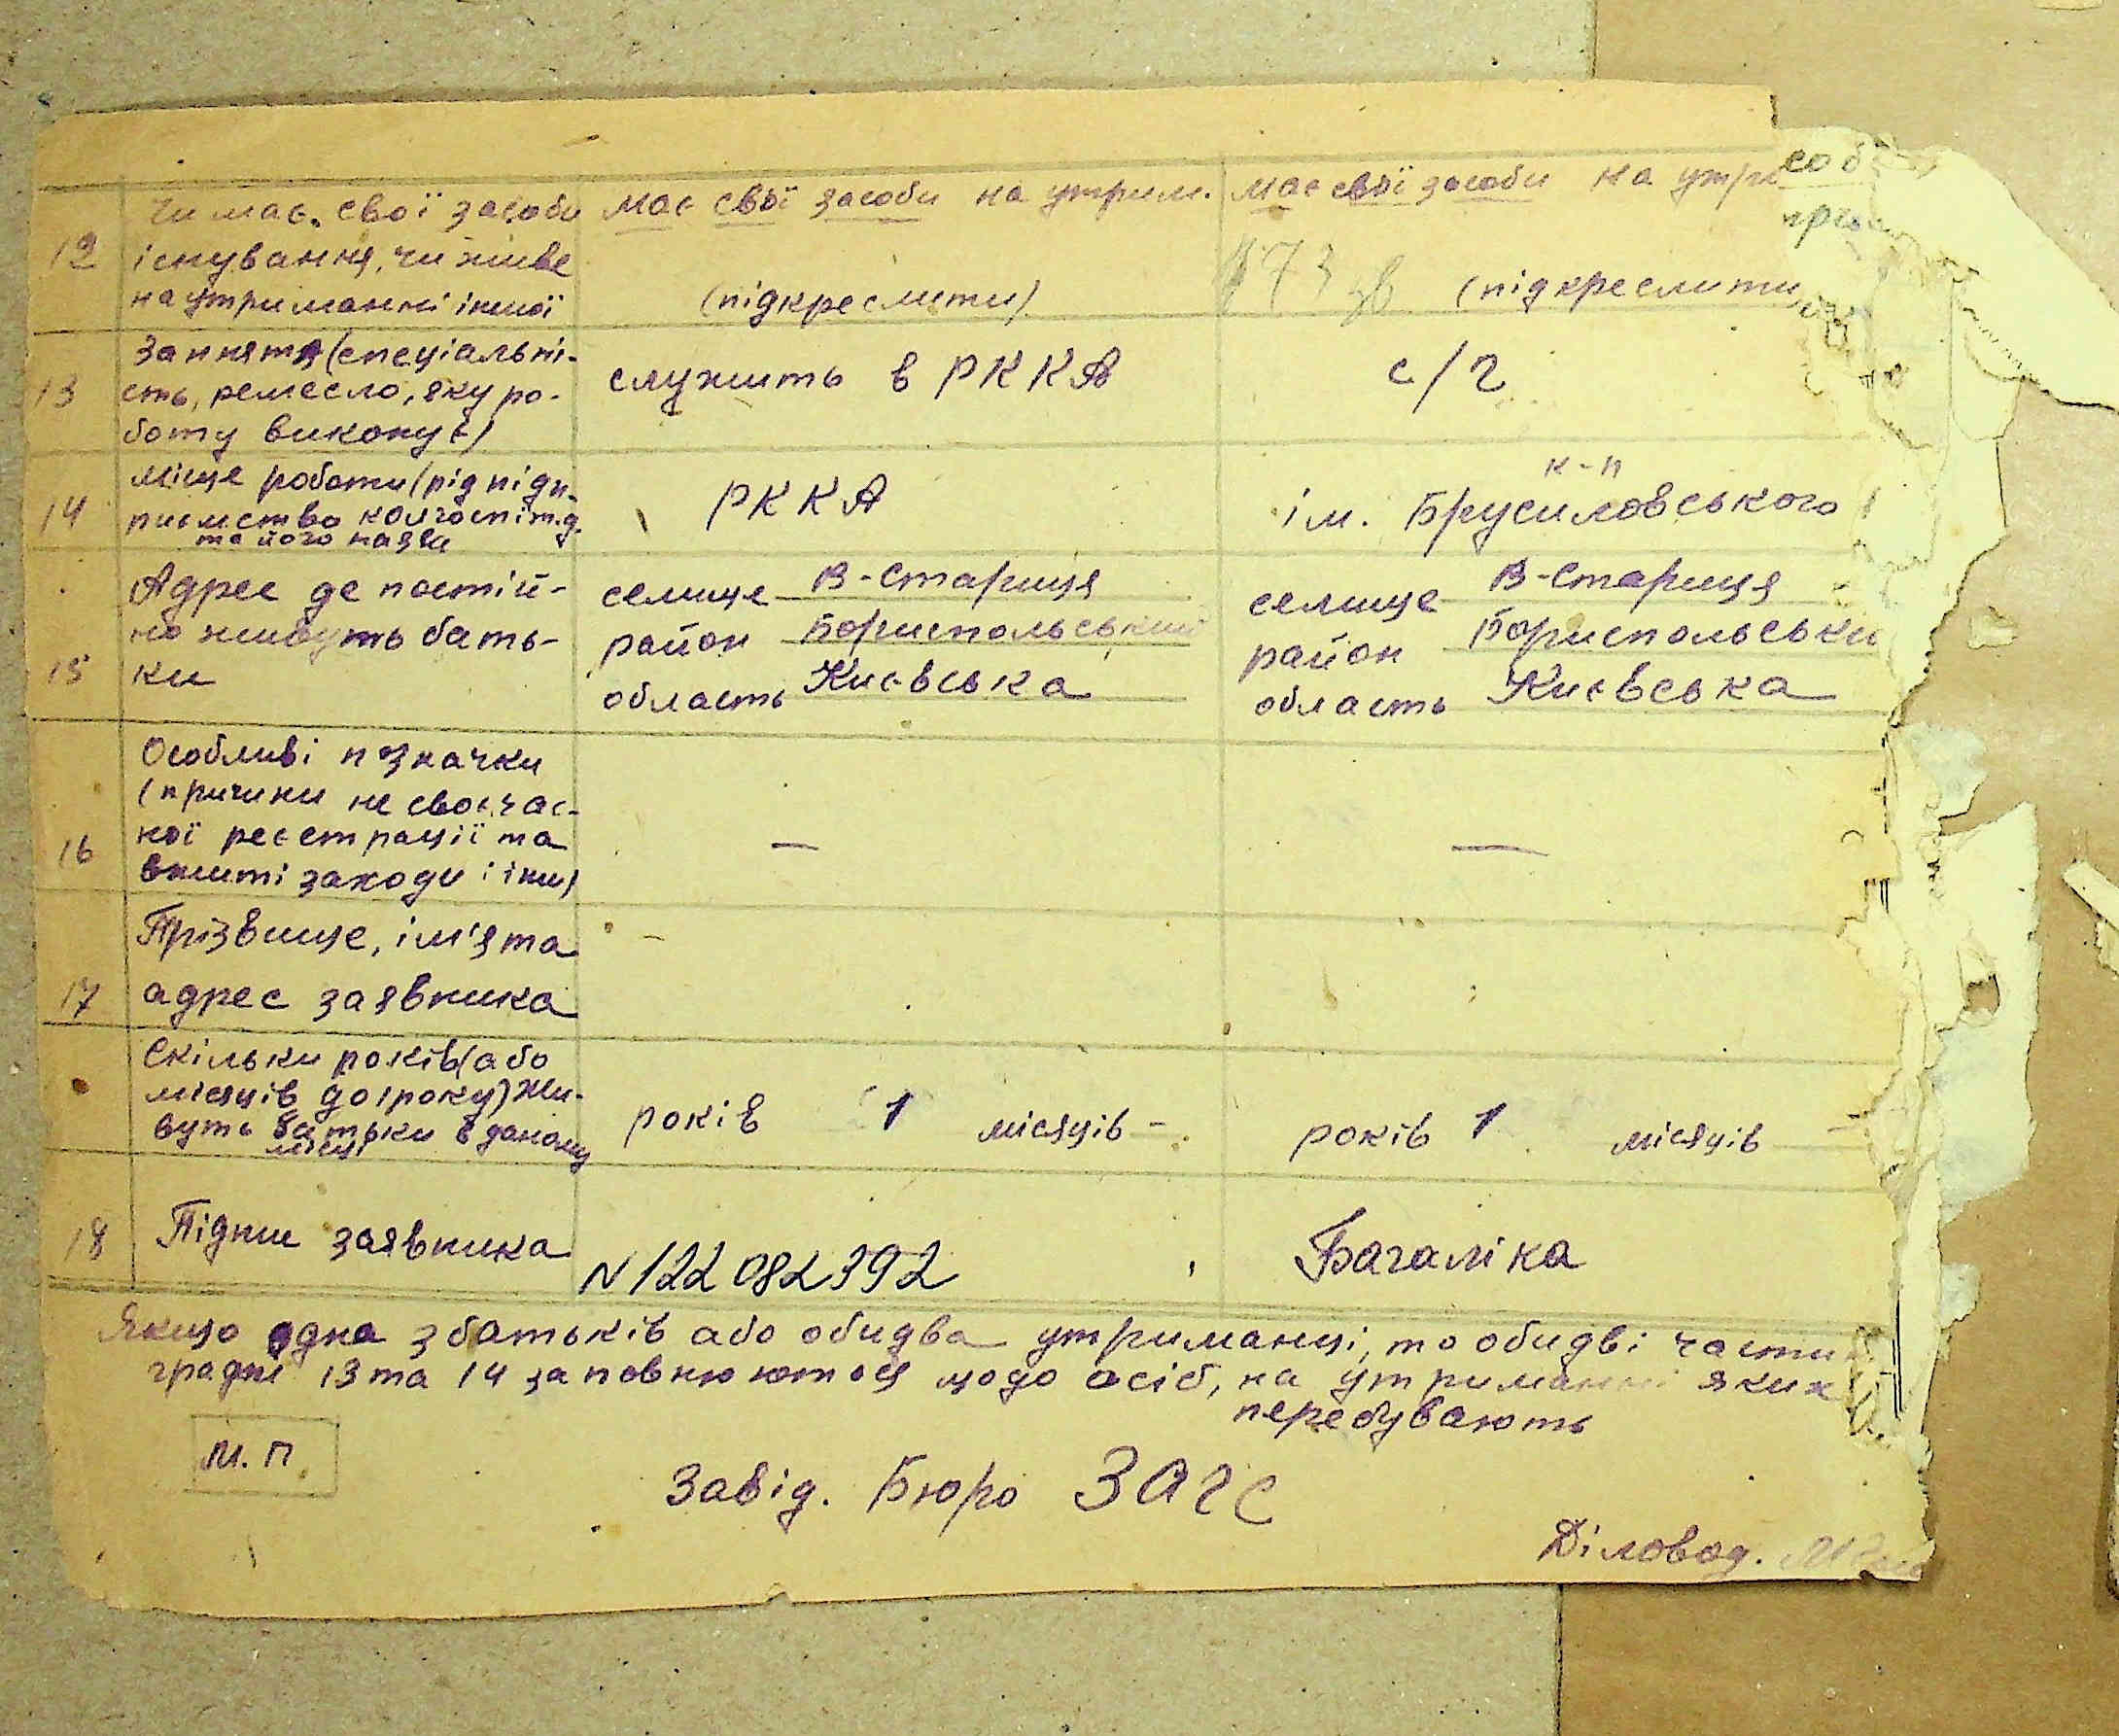 Чи має свої засоби має свої засоби на утрим. має свої засоби на утри
12 існування, чи живе
на утриманні іншої (підкреслити) (підкреслити
Заняття (спеціальні- служить в РККА с/г
13 сть, ремесло, яку ро-
боту виконує)
Місце роботи (підп РККА к-п
14 риємство колгосп і т.д. ім. Брусиловського
та його назва
Адрес де постій- селище В-Стариця селище В-Стариця
но живуть бать- район Бориспольський район Бориспольськи
15 ки область Києвська область Києвська
Особливі позначки
(причини не своєчас-
16 ної реєстрації та — —
вжиті заходи і інш)
Прізвище, ім'я та -
17 адрес заявника
Скільки років (або
місяців до 1 року) жи- років 1 місяців - років 1 місяців
вуть батьки в даному
місці
18 Підпис заявника N 122 082392 Багаліка
Якщо одна з батьків або обидва утриманці, то обидві части
градпі 13 та 14 заповнюються щодо осіб, на утриманні яких
перебувають
М.П.
Завід. Бюро ЗАГС
Діловод.